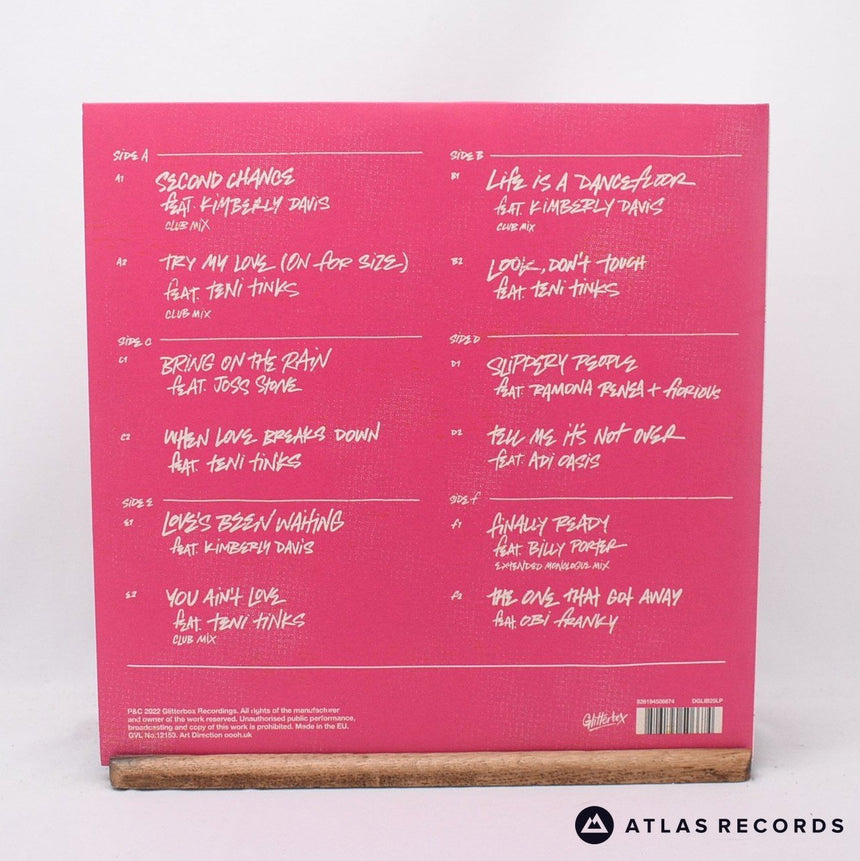 SIDE A
A1 SECOND CHANCE
feat. KIMBERLY DAVIS
CLUB MIX
A2 TRY MY LOVE (ON FOR SIZE)
feat. TENI TINKS
CLUB MIX
SIDE B
B1 LIFE IS A DANCEFLOOR
feat. KIMBERLY DAVIS
CLUB MIX
B2 LOOK, DON'T TOUCH
feat. TENI TINKS
SIDE C
C1 BRING ON THE RAIN
feat. JOSS STONE
C2 WHEN LOVE BREAKS DOWN
feat. TENI TINKS
SIDE D
D1 SLIPPERY PEOPLE
feat. RAMONA RENEA + FIORIOUS
D2 TELL ME IT'S NOT OVER
feat. ADI OASIS
SIDE E
E1 LOVE'S BEEN WAITING
feat. KIMBERLY DAVIS
E2 YOU AIN'T LOVE
feat. TENI TINKS
CLUB MIX
SIDE F
F1 FINALLY READY
feat. BILLY PORTER
EXTENDED MONOLOGUE MIX
F2 THE ONE THAT GOT AWAY
feat. OBI FRANKY
P&C 2022 Glitterbox Recordings. All rights of the manufacturer
and owner of the work reserved. Unauthorised public performance,
broadcasting and copy of this work is prohibited. Made in the EU.
GVL No.12153. Art Direction oooh.uk
Glitterbox
DGLIB25LP
ATLAS RECORDS